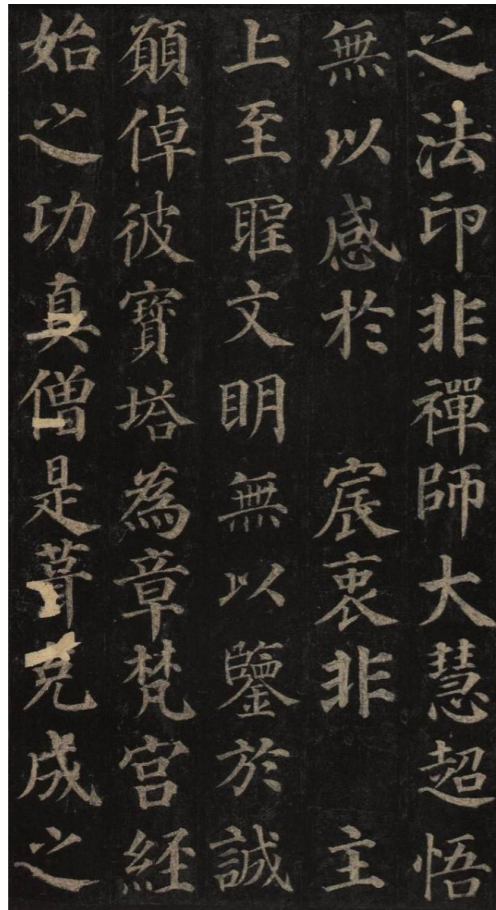 之法印非禪師大慧超悟
無以感於 宸衷非 主
上至聖文明無以鑒於誠
願倬彼寶塔為章梵宮經
始之功真僧是葺克成之